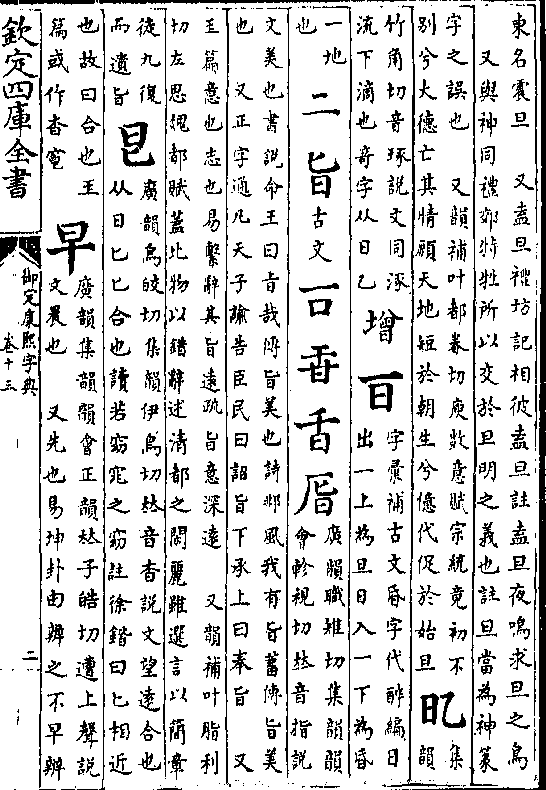 東名震旦 又盍旦禮坊記相彼盍旦註盍旦夜鳴求旦之鳥
又與神同禮郊特牲所以交於旦明之義也註旦當為神篆
字之誤也 又韻補叶都眷切庾敱意賦宗統竟初不
別兮大德亡其情願天地短於朝生兮億代促於始旦
集
韻
竹角切音琢說文同涿
流下滴也奇字从日乙
增
字彙補古文昏字代醉編日
出一上為旦日入一下為昏
一地
也
二 旨
古文
𠮛
廣韻職雉切集韻韻
會軫視切𠀤音指說
文美也書說命王曰旨哉傳旨美也詩邶風我有旨蓄傳旨美
也 又正字通凡天子諭告臣民曰詔旨下承上曰奉旨 又
玉篇意也志也易繫辭其旨遠疏旨意深遠 又韻補叶脂利
切左思魏都賦蓋比物以錯辭述清都之閒麗雖選言以簡章
徒九復
而遺旨
㫐
廣韻烏皎切集韻伊鳥切𠀤音杳說文望遠合也
从日匕匕合也讀若窈窕之窈註徐鍇曰匕相近
也故曰合也玉
篇或作杳窅
早
廣韻集韻韻會正韻𠀤子皓切遭上聲說
文晨也 又先也易坤卦由辨之不早辨
欽定四庫全書
御定康熙字典
卷十三
二